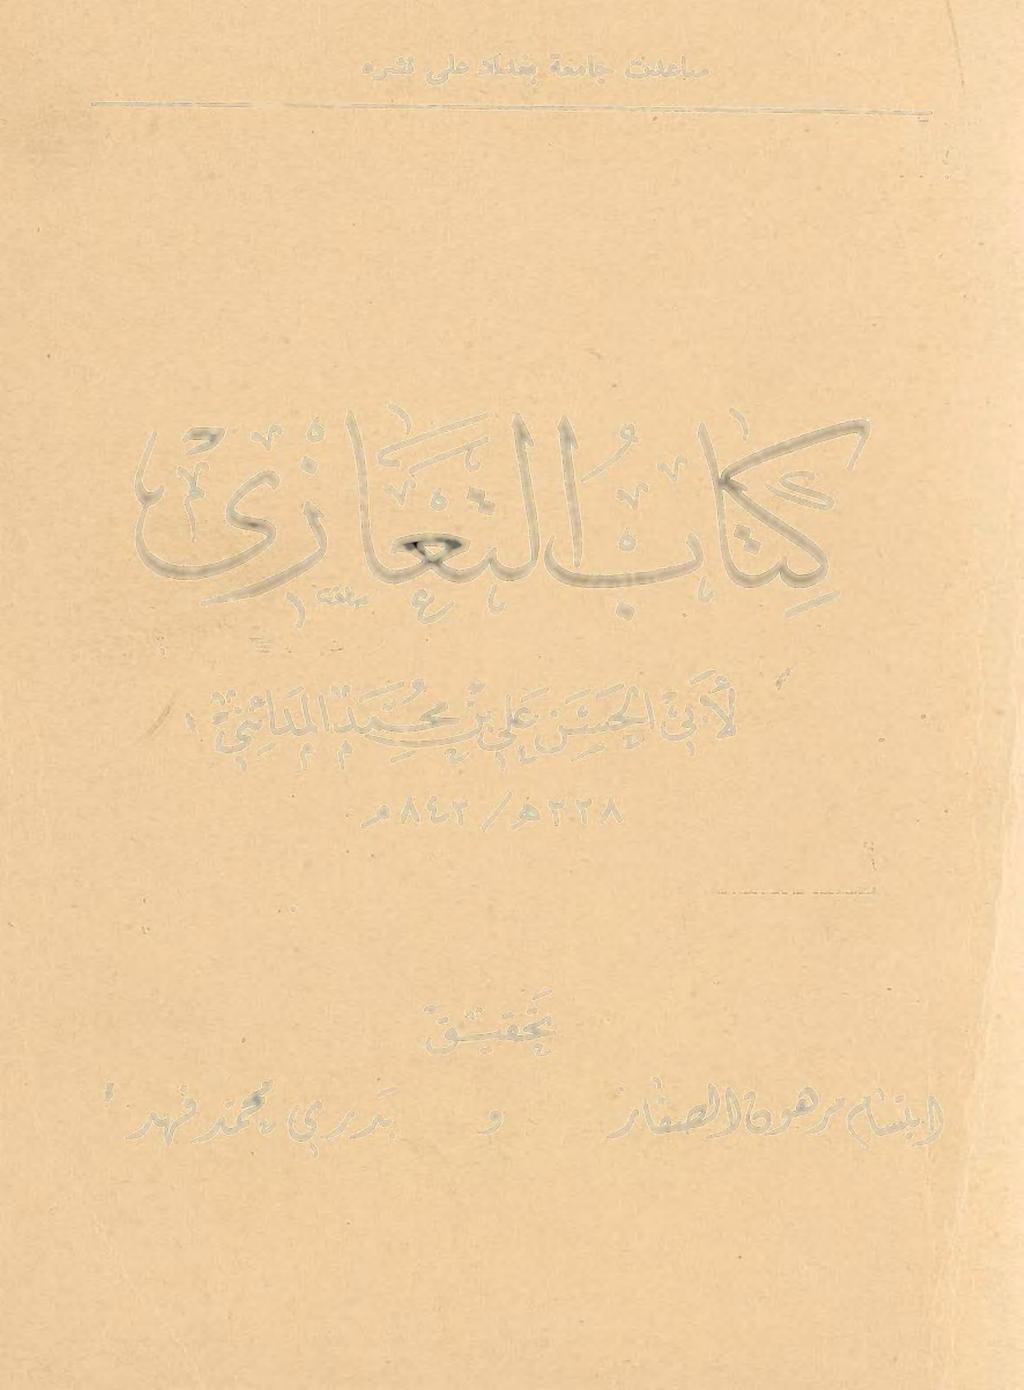 ساعدت جامعة بغداد على نشره
كِتَابُ التَّعَازِي
لأَبِي الحَسَن عَلِي بْن مُحَمَّد المَدَائِنِي
٢٢٨هـ / ٨٤٢م
تَحقِيق
ابتسام مرهون الصفار و بدري محمد فهد